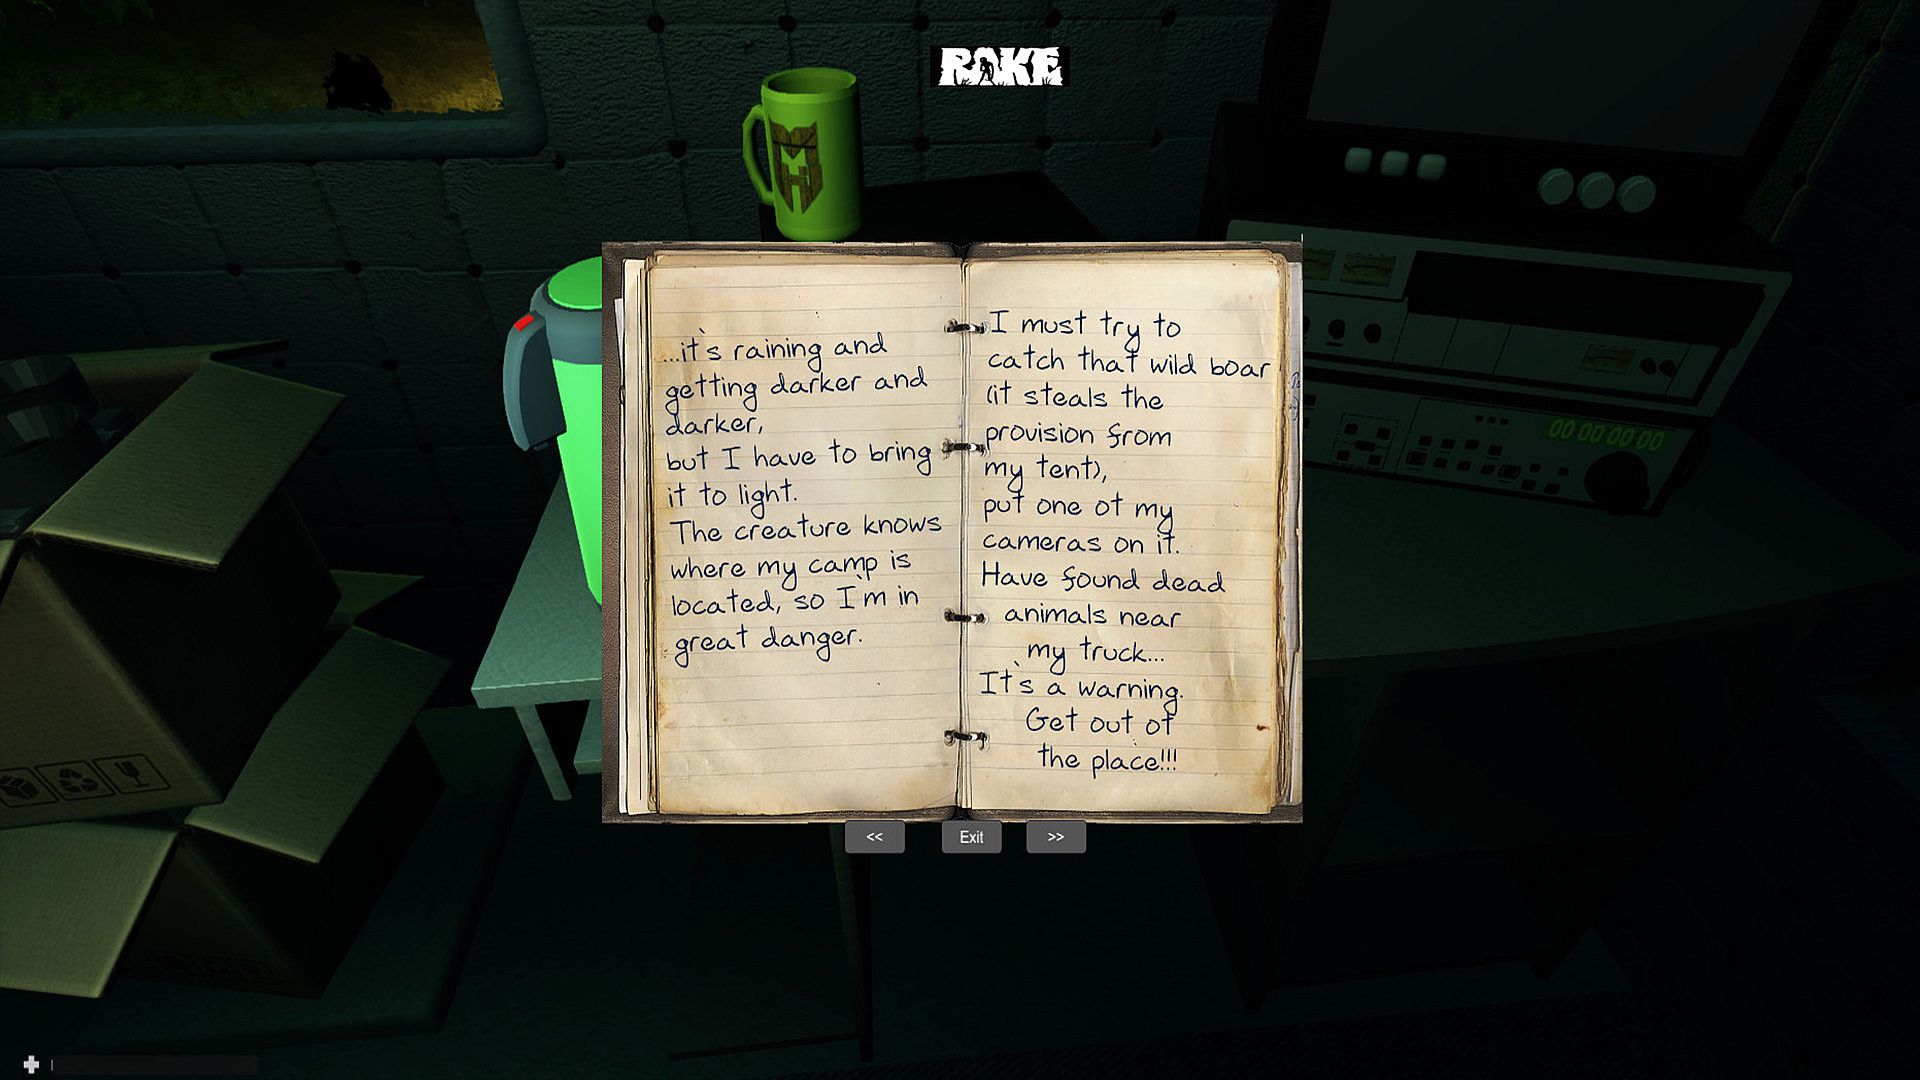 RAKE
...it's raining and
getting darker and
darker,
but I have to bring
it to light.
The creature knows
where my camp is
located, so I'm in
great danger.
I must try to
catch that wild boar
(it steals the
provision from
my tent),
put one of my
cameras on it.
Have found dead
animals near
my truck...
It's a warning.
Get out of
the place!!!
<< Exit >>
00:00:00:00